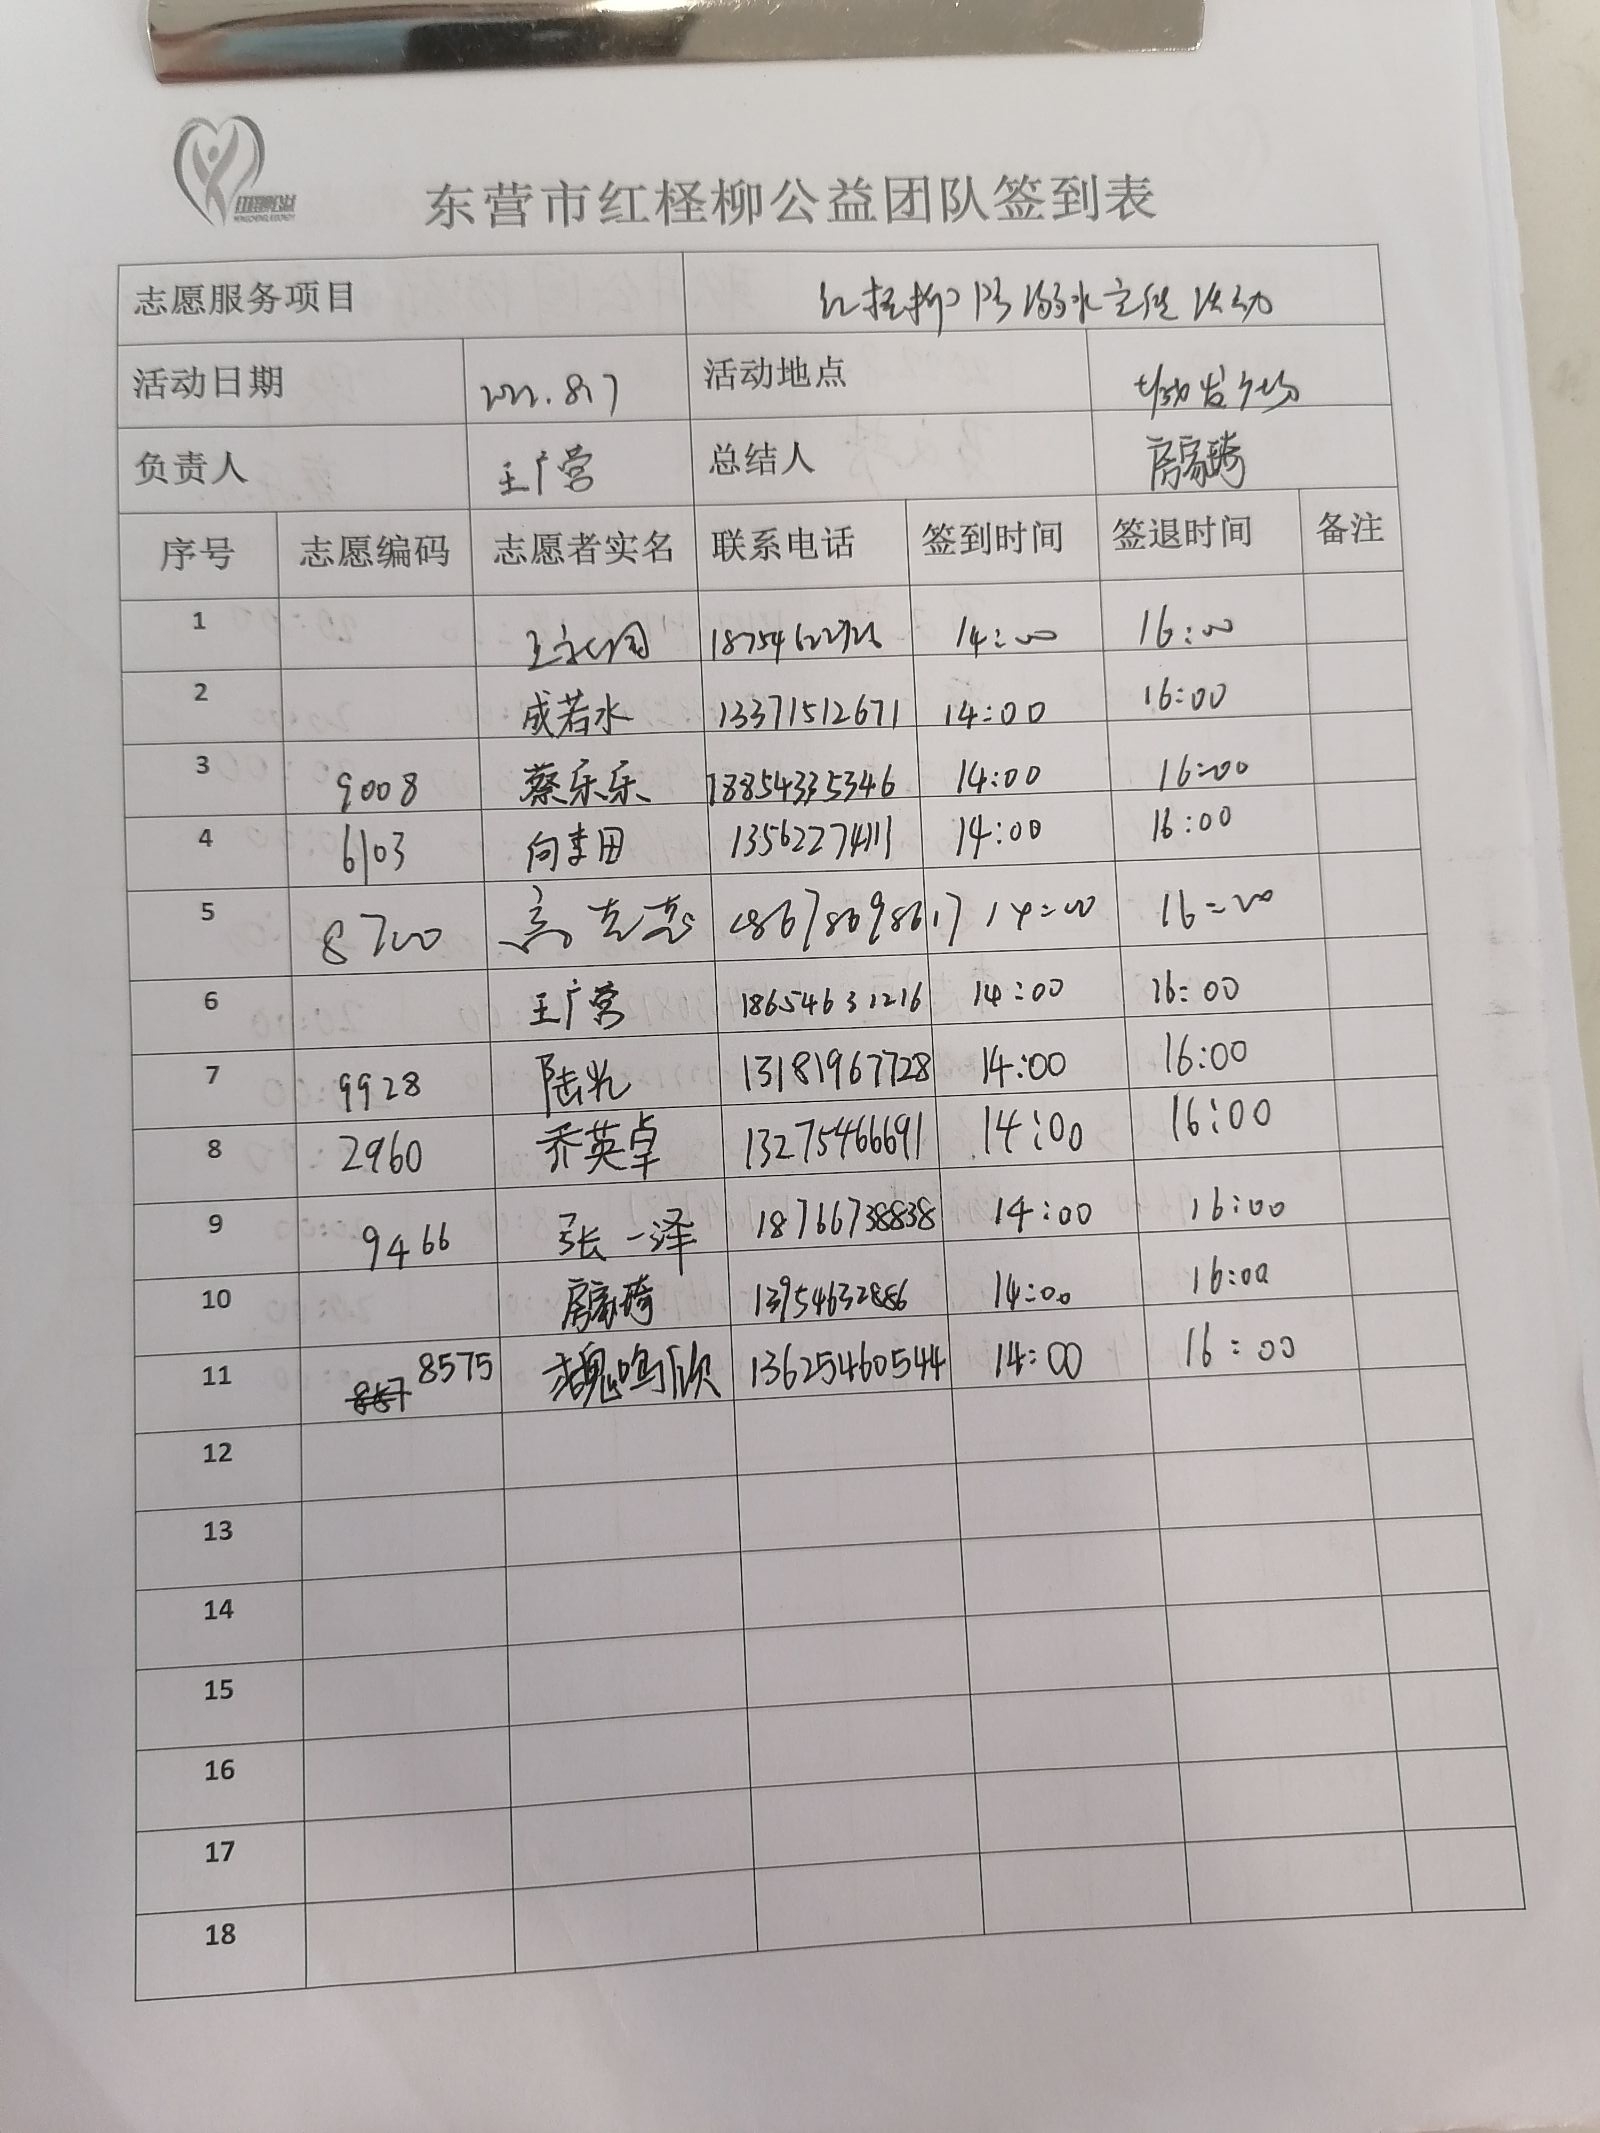 东营市红柽柳公益团队签到表
志愿服务项目 红柽柳防溺水宣传活动
活动日期 2022.8.17 活动地点
负责人 王广营 总结人 房家琦
序号 志愿编码 志愿者实名 联系电话 签到时间 签退时间 备注
1 14:00 16:00
2 成若水 13371512671 14:00 16:00
3 9008 蔡乐乐 18854335346 14:00 16:00
4 6103 向李田 13562274111 14:00 16:00
5 8700 18678698617 14:00 16:00
6 王广营 18654631216 14:00 16:00
7 9928 陆光 13181967728 14:00 16:00
8 2960 乔英卓 13275466691 14:00 16:00
9 9466 张一泽 18766738838 14:00 16:00
10 房家琦 13954632886 14:00 16:00
11 8575 魏鸣欣 13625460544 14:00 16:00
12
13
14
15
16
17
18